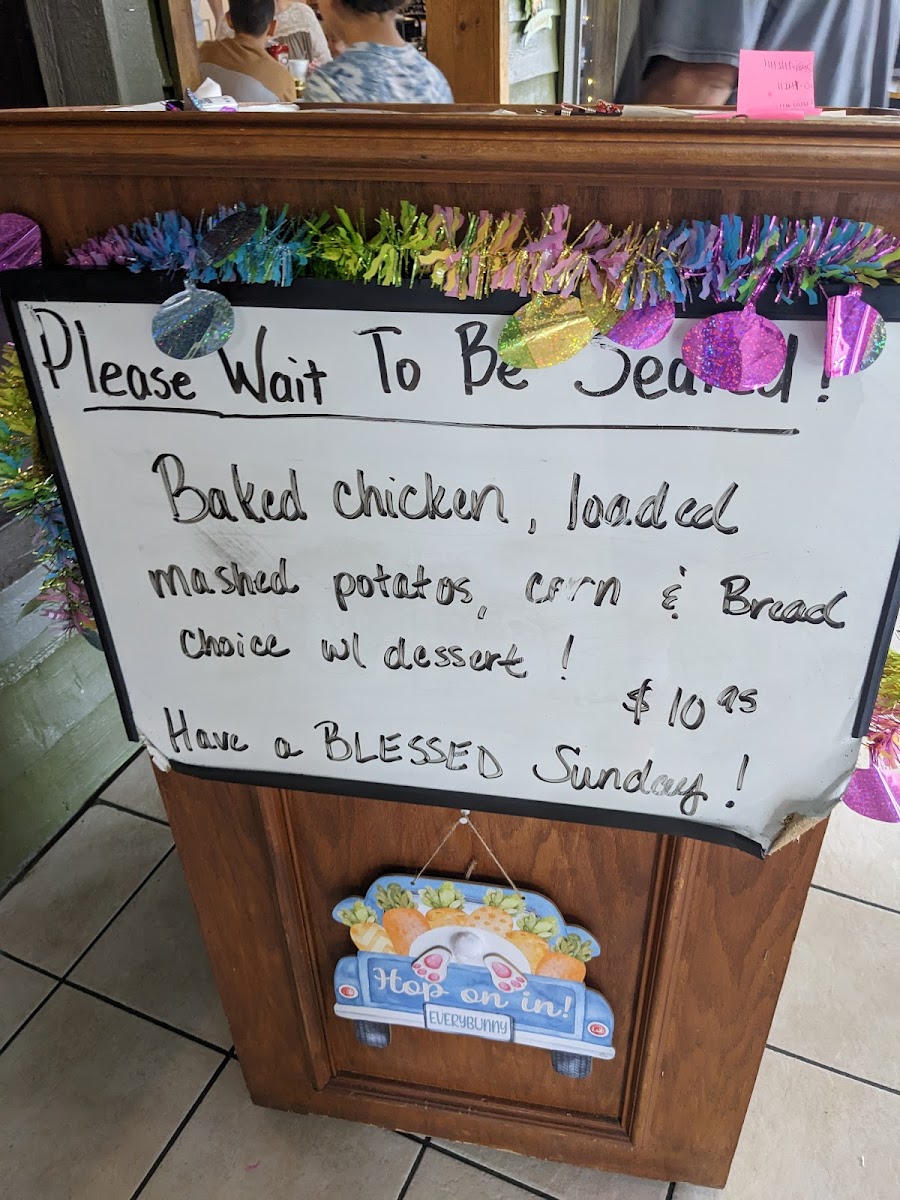 Please Wait To Be Seated!
Baked chicken, loaded
mashed potatos, corn & Bread
choice w/ dessert!
$10.95
Have a BLESSED Sunday!
Hop on in!
EVERYBUNNY